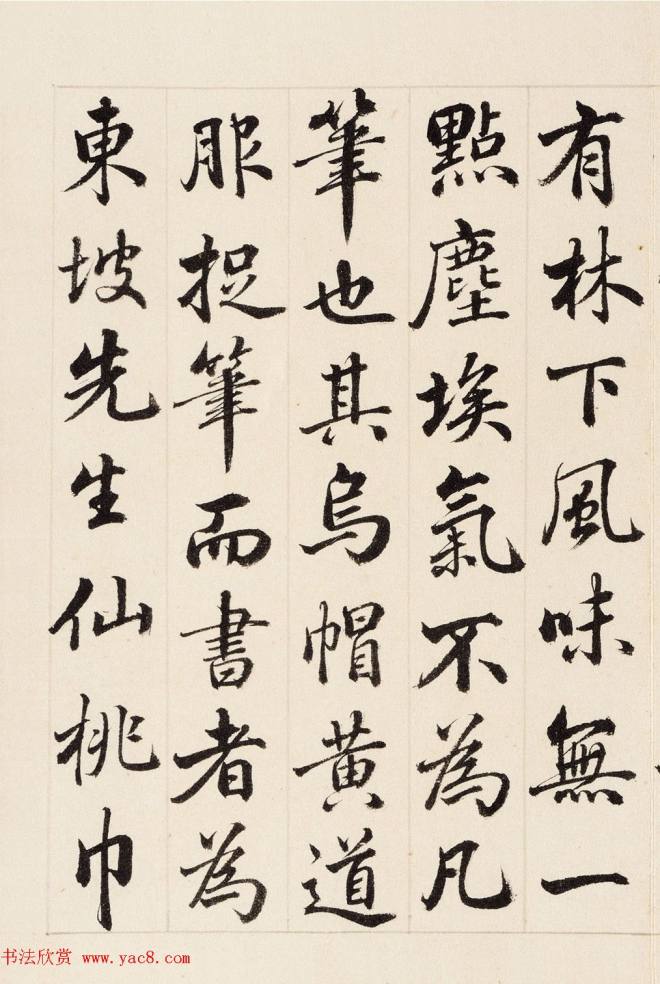 有林下風味無一
點塵埃氣不為凡
筆也其烏帽黃道
服捉筆而書者為
東坡先生仙桃巾
书法欣赏 www.yac8.com